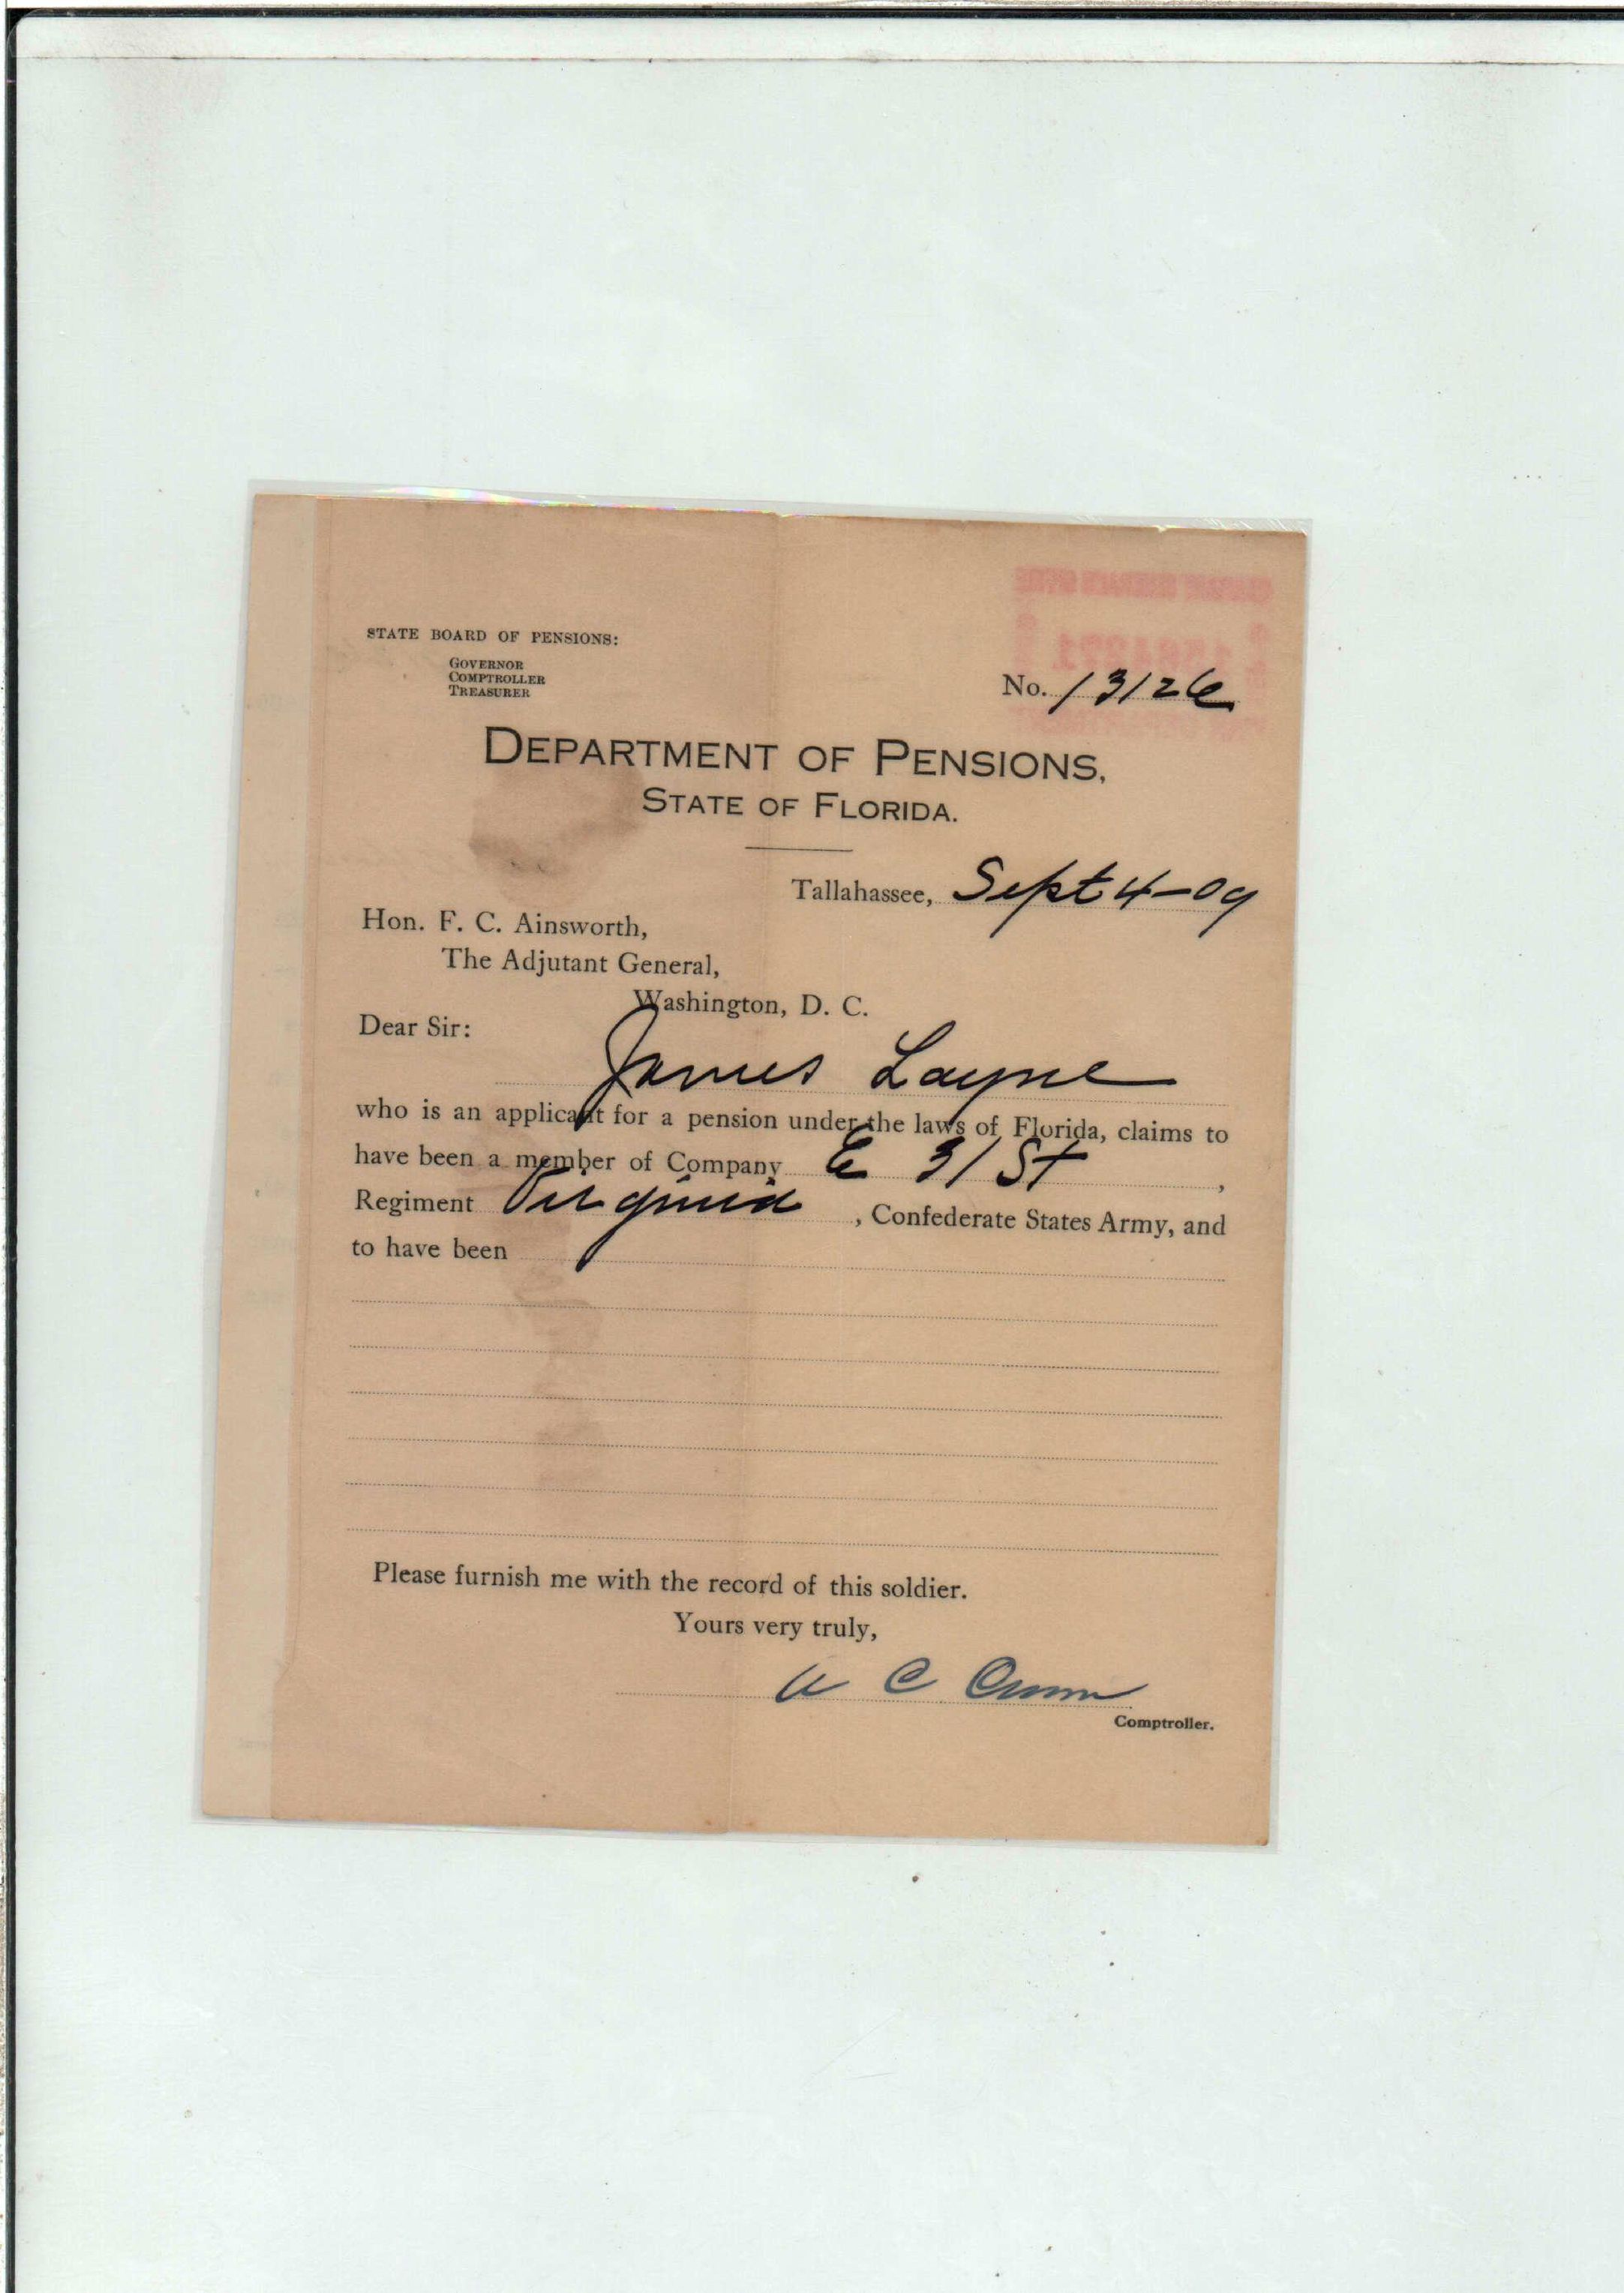 STATE BOARD OF PENSIONS:
GOVERNOR
COMPTROLLER
TREASURER
No. 13126
DEPARTMENT OF PENSIONS,
STATE OF FLORIDA.
Tallahassee, Sept 4-09
Hon. F. C. Ainsworth,
The Adjutant General,
Washington, D. C.
Dear Sir:
James Layne
who is an applicant for a pension under the laws of Florida, claims to
have been a member of Company E 31 St ,
Regiment Virginia , Confederate States Army, and
to have been
Please furnish me with the record of this soldier.
Yours very truly,
C
Comptroller.